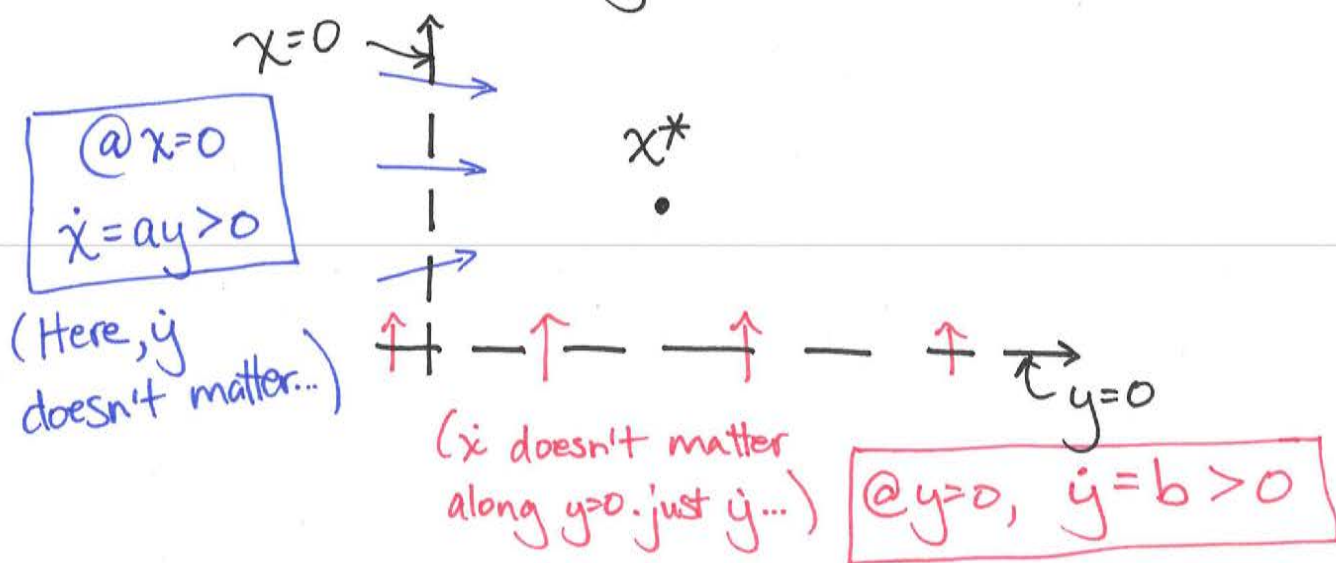 x=0
@ x=0
ẋ = ay > 0
(Here, ẏ
doesn't matter...)
x*
y=0
(ẋ doesn't matter
along y=0. just ẏ...)
@ y=0, ẏ = b > 0